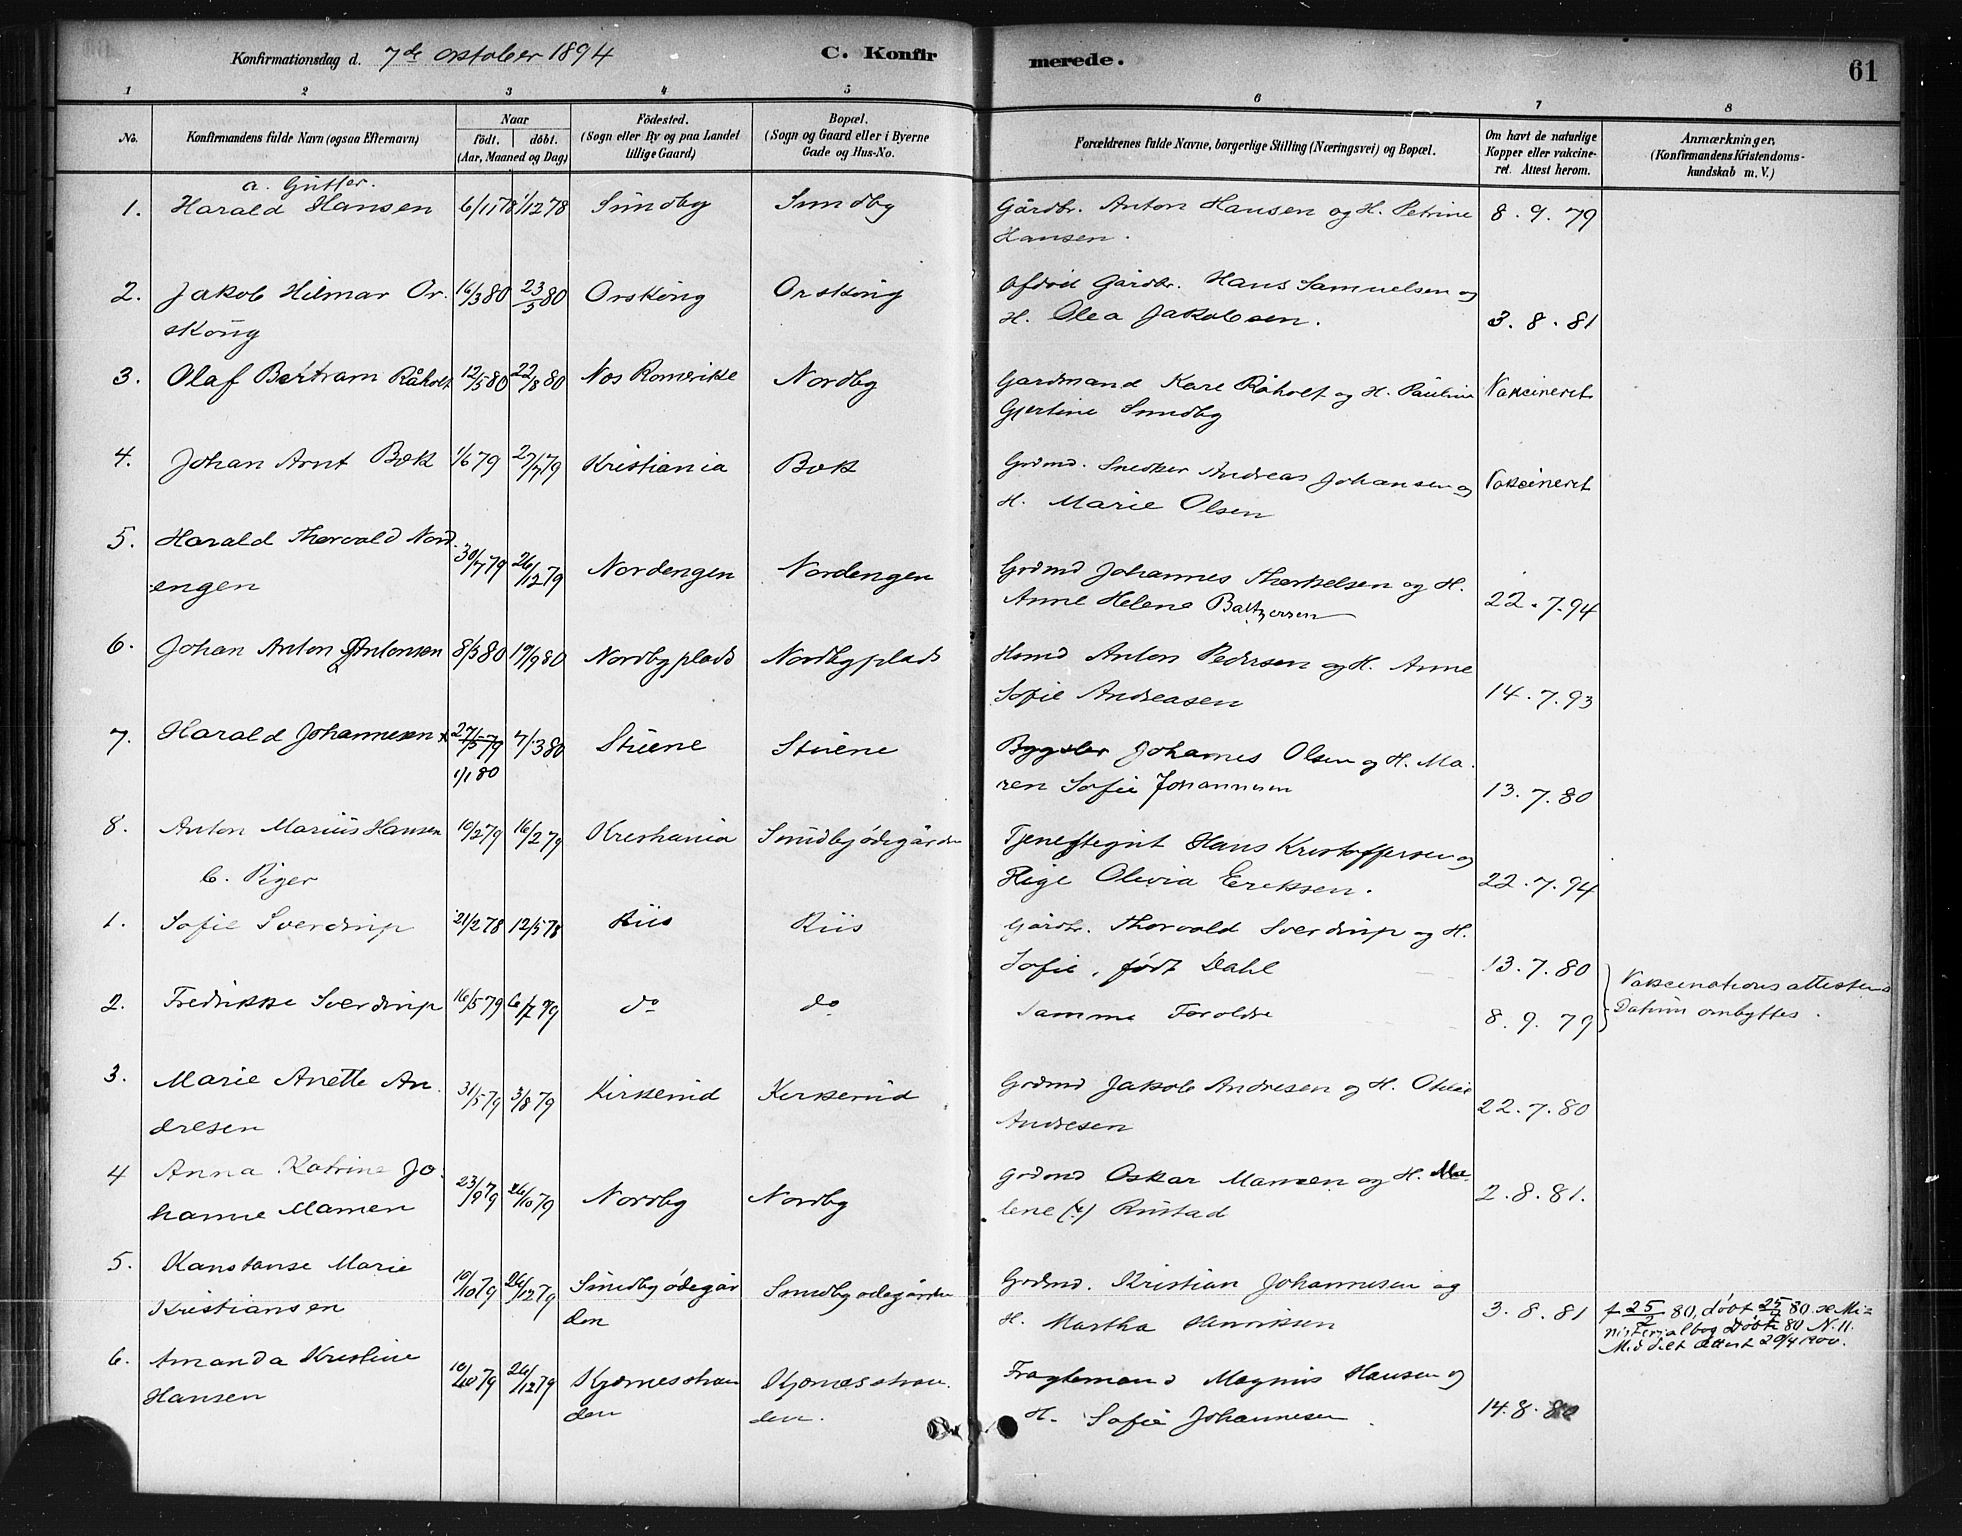 Konfirmationsdag d. 7de oktober 1894 C. Konfirmerede. 61
1 2 3 4 5 6 7 8
No. Konfirmandens fulde Navn (ogsaa Efternavn) Naar født. døbt. (Aar, Maaned og Dag) Fødested. (Sogn eller By og paa Landet tillige Gaard) Bopæl. (Sogn og Gaard eller i Byerne Gade og Hus-No. Forældrenes fulde Navne, borgerlige Stilling (Næringsvei) og Bopæl. Om havt de naturlige Kopper eller vakcineret. Attest herom. Anmærkninger. (Konfirmandens Kristendomskundskab m. V.)
a. Gutter.
1. Harald Hansen 6/11 78 1/12 78 Sundby Sundby Gårdbr. Anton Hansen og H. Petrine 8. 9. 79
Hansen.
2. Jakob Hilmar Or. 16/3 80 23/5 80 Orskoug Orskoug Afdød Gårdbr. Hans Samuelsen og
skoug H. Olea Jakobsen. 3. 8. 81
3. Olaf Bertram Råholt 12/5 80 22/8 80 Nes Romerike Nordby Gardmand Kare Råholt og H. Pauline Vakcineret
Gjertine Sundby
4. Johan Arnt Bæk 1/6 79 27/7 79 Kristiania Bæk Grdmd. Snedker Andreas Johansen og Vakcineret
H. Marie Olsen
5. Harald Thorvald Nord. 30/7 79 26/12 79 Nordengen Nordengen Grdmd Johannes Thorkelsen og H.
engen Anne Helene Baltzersen 22. 7. 94
6. Johan Anton Antonsen 8/5 80 19/9 80 Nordbyplads Nordbyplads Husmd Anton Pedersen og H. Anne
Sofie Andreasen 14. 7. 93
7. Harald Johannesen x 27/5 79 7/3 80 Stuene Stuene Bygsler Johannes Olsen og H. Ma.
1/1 80 ren Sofie Johannesen 13. 7. 80
8. Anton Marius Hansen 10/2 79 16/2 79 Kristiania Sundbyødegården Tjenestegut Hans Kristoffersen og
Pige Olivia Eriksen. 22. 7. 94
b. Piger
1. Sofie Sverdrup 21/2 78 12/5 78 Riis Riis Gårdbr. Thorvald Sverdrup og H.
Sofie, født Dahl 13. 7. 80
2. Fredrikke Sverdrup 16/5 79 6/7 79 do do Samme Foroldre 8. 9. 79 Vakcinationsattestens
Datum ombyttes.
3. Marie Anette An. 31/5 79 3/8 79 Kirkerud Kirkerud Grdmd Jakob Andresen og H.
dresen Andresen 22. 7. 80
4 Anna Katrine Jo. 23/9 79 26/10 79 Nordby Nordby Grdmd Oskar Mamen og H. Ma.
hanne Mamen lene Rustad 2. 8. 81.
5. Konstanse Marie 10/10 79 26/12 79 Smedbyødegår Smedbyødegården Grdmd. Kristian Johannesen og
Kristiansen den H. Martha Henriksen 3. 8. 81 f 25/2 80, døbt 25 80 se Mi=
nisterialbog Døbte 80 N. 11.
Meddelt Attest 20/4 1900.
6. Amanda Kristine 10/10 79 26/12 79 Kjærnesstran Kjærnesstran. Fragtemand Magnus Hansen og
Hansen den den. H. Sofie Johannesen. 14. 8. 80